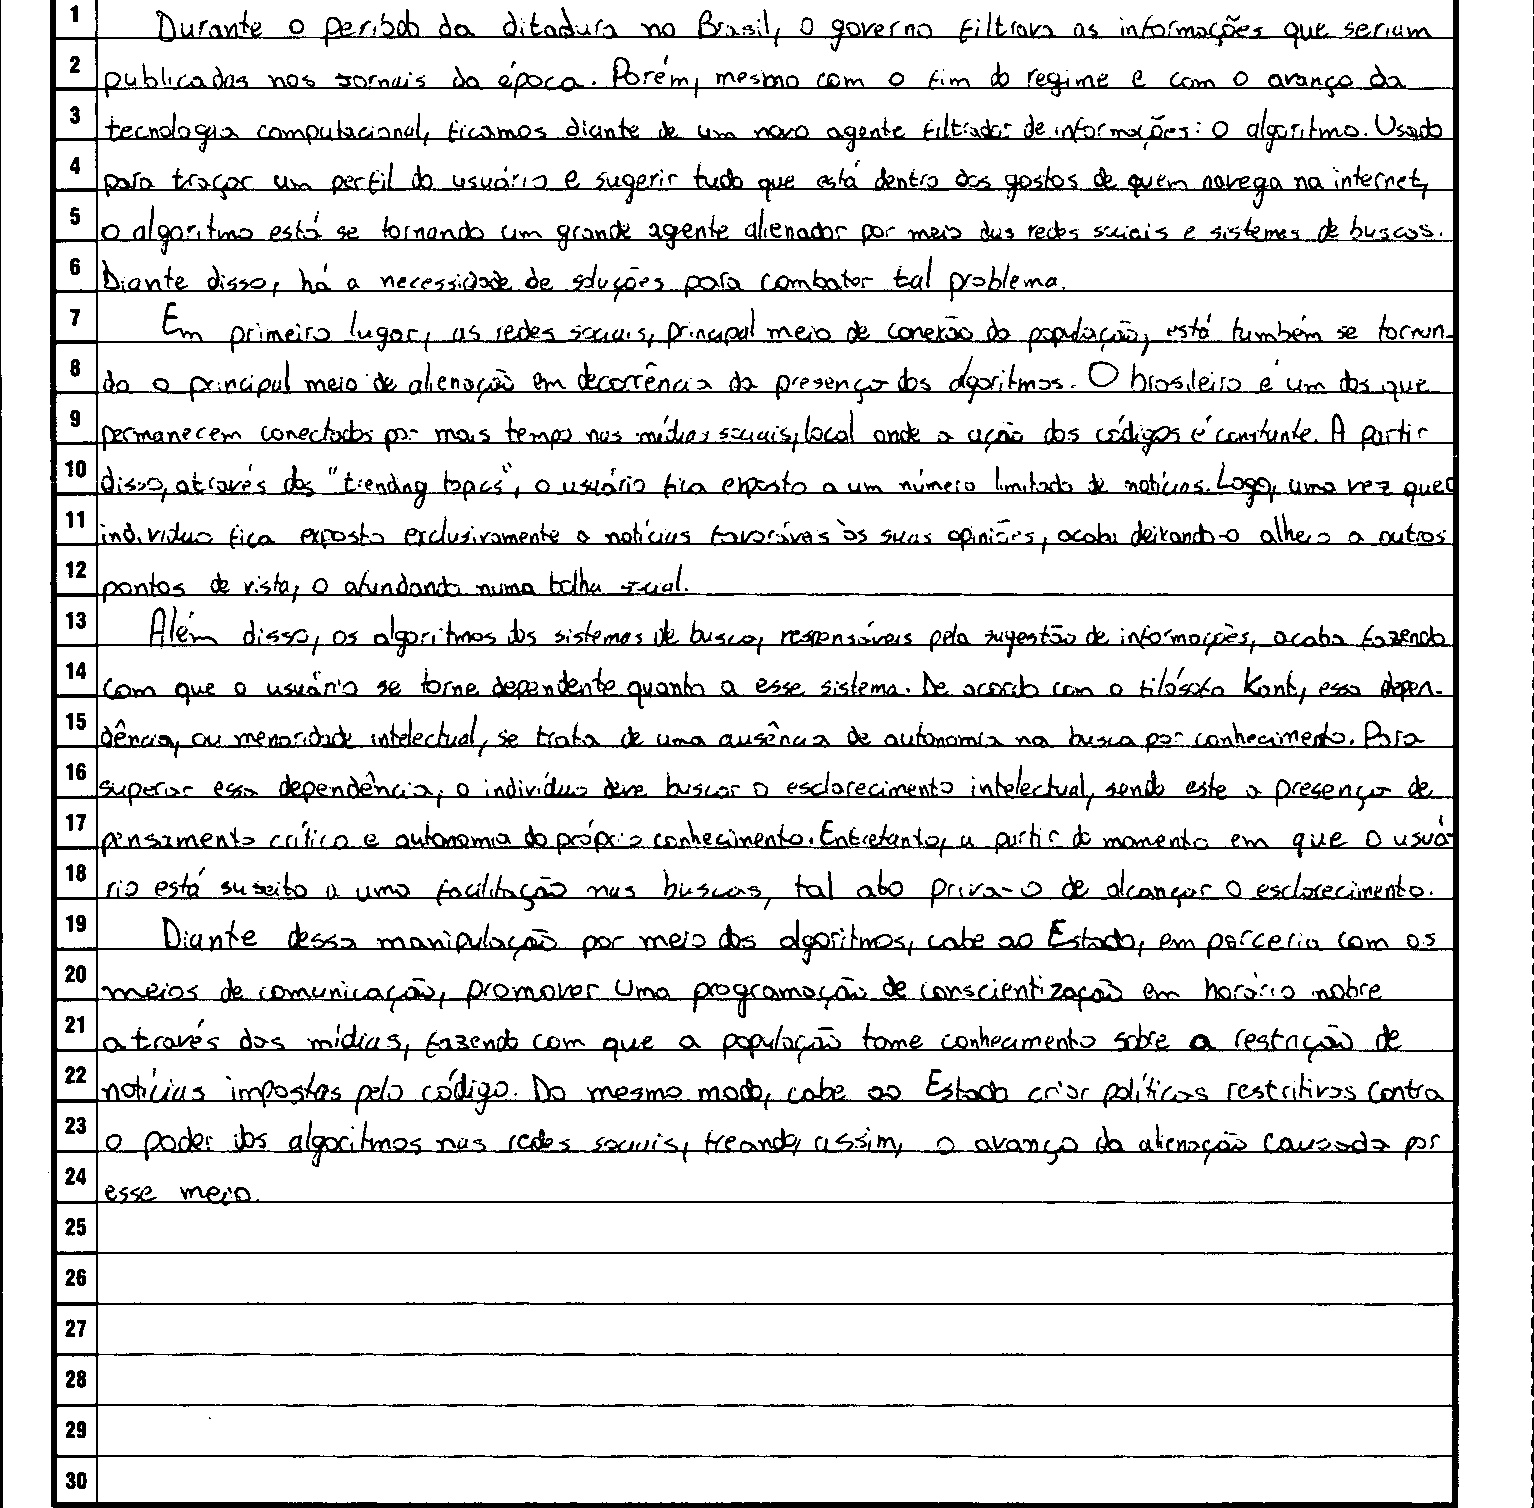 1 Durante o período da ditadura no Brasil, o governo filtrava as informações que seriam
2 publicadas nos jornais da época. Porém, mesmo com o fim do regime e com o avanço da
3 tecnologia computacional, ficamos diante de um novo agente filtrador de informações: o algoritmo. Usado
4 para traçar um perfil do usuário e sugerir tudo que está dentro dos gostos de quem navega na internet,
5 o algoritmo está se tornando um grande agente alienador por meio das redes sociais e sistemas de buscas.
6 Diante disso, há a necessidade de soluções para combater tal problema.
7 Em primeiro lugar, as redes sociais, principal meio de conexão da população, está também se tornan-
8 do o principal meio de alienação em decorrência da presença dos algoritmos. O brasileiro é um dos que
9 permanecem conectados por mais tempo nas mídias sociais, local onde a ação dos códigos é constante. A partir
10 disso, através dos "trending topics", o usuário fica exposto a um número limitado de notícias. Logo, uma vez que o
11 individuo fica exposto exclusivamente a notícias favoráveis às suas opiniões, acaba deixando-o alheio a outros
12 pontos de vista, o afundando numa bolha social.
13 Além disso, os algoritmos dos sistemas de busca, responsáveis pela sugestão de informações, acaba fazendo
14 com que o usuário se torne dependente quanto a esse sistema. De acordo com o filósofo Kant, essa depen-
15 dência, ou menoridade intelectual, se trata de uma ausência de autonomia na busca por conhecimento. Para
16 superar essa dependência, o indivíduo deve buscar o esclarecimento intelectual, sendo este a presença de
17 pensamento crítico e autonomia do próprio conhecimento. Entretanto, a partir do momento em que o usuá-
18 rio está sujeito a uma facilitação nas buscas, tal ato priva-o de alcançar o esclarecimento.
19 Diante dessa manipulação por meio dos algoritmos, cabe ao Estado, em parceria com os
20 meios de comunicação, promover uma programação de conscientização em horário nobre
21 através das mídias, fazendo com que a população tome conhecimento sobre a restrição de
22 notícias impostas pelo código. Do mesmo modo, cabe ao Estado criar políticas restritivas contra
23 o poder dos algoritmos nas redes sociais, freando, assim, o avanço da alienação causada por
24 esse meio.
25
26
27
28
29
30